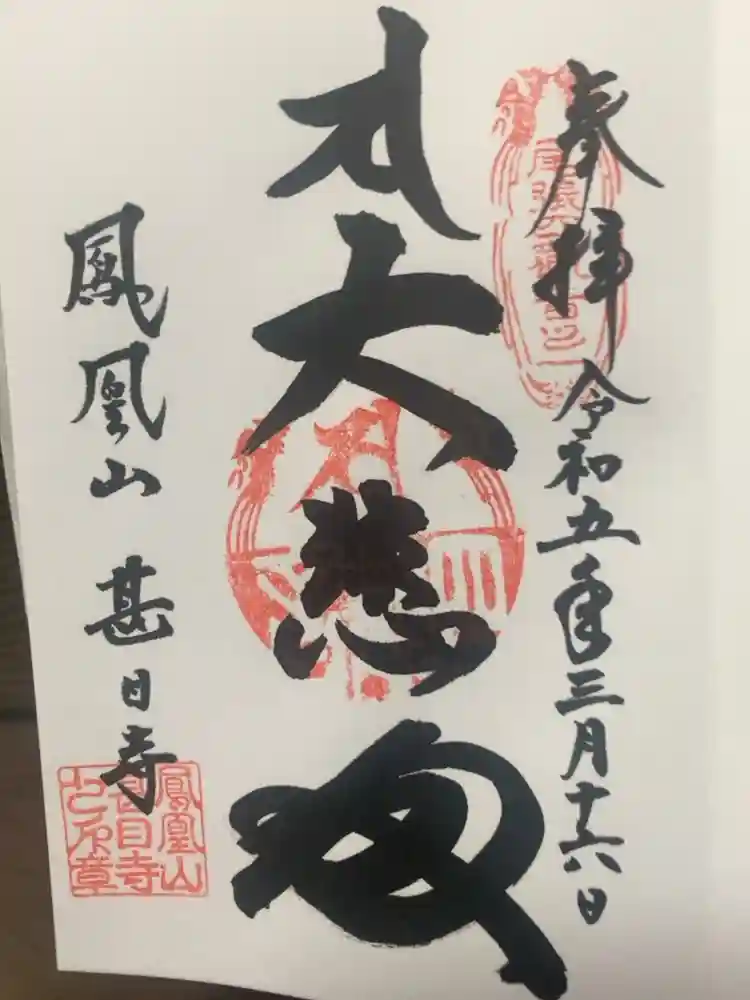 奉拝 令和五年三月十六日
大悲殿
鳳凰山 甚目寺
鳳凰山
甚目寺
之印章